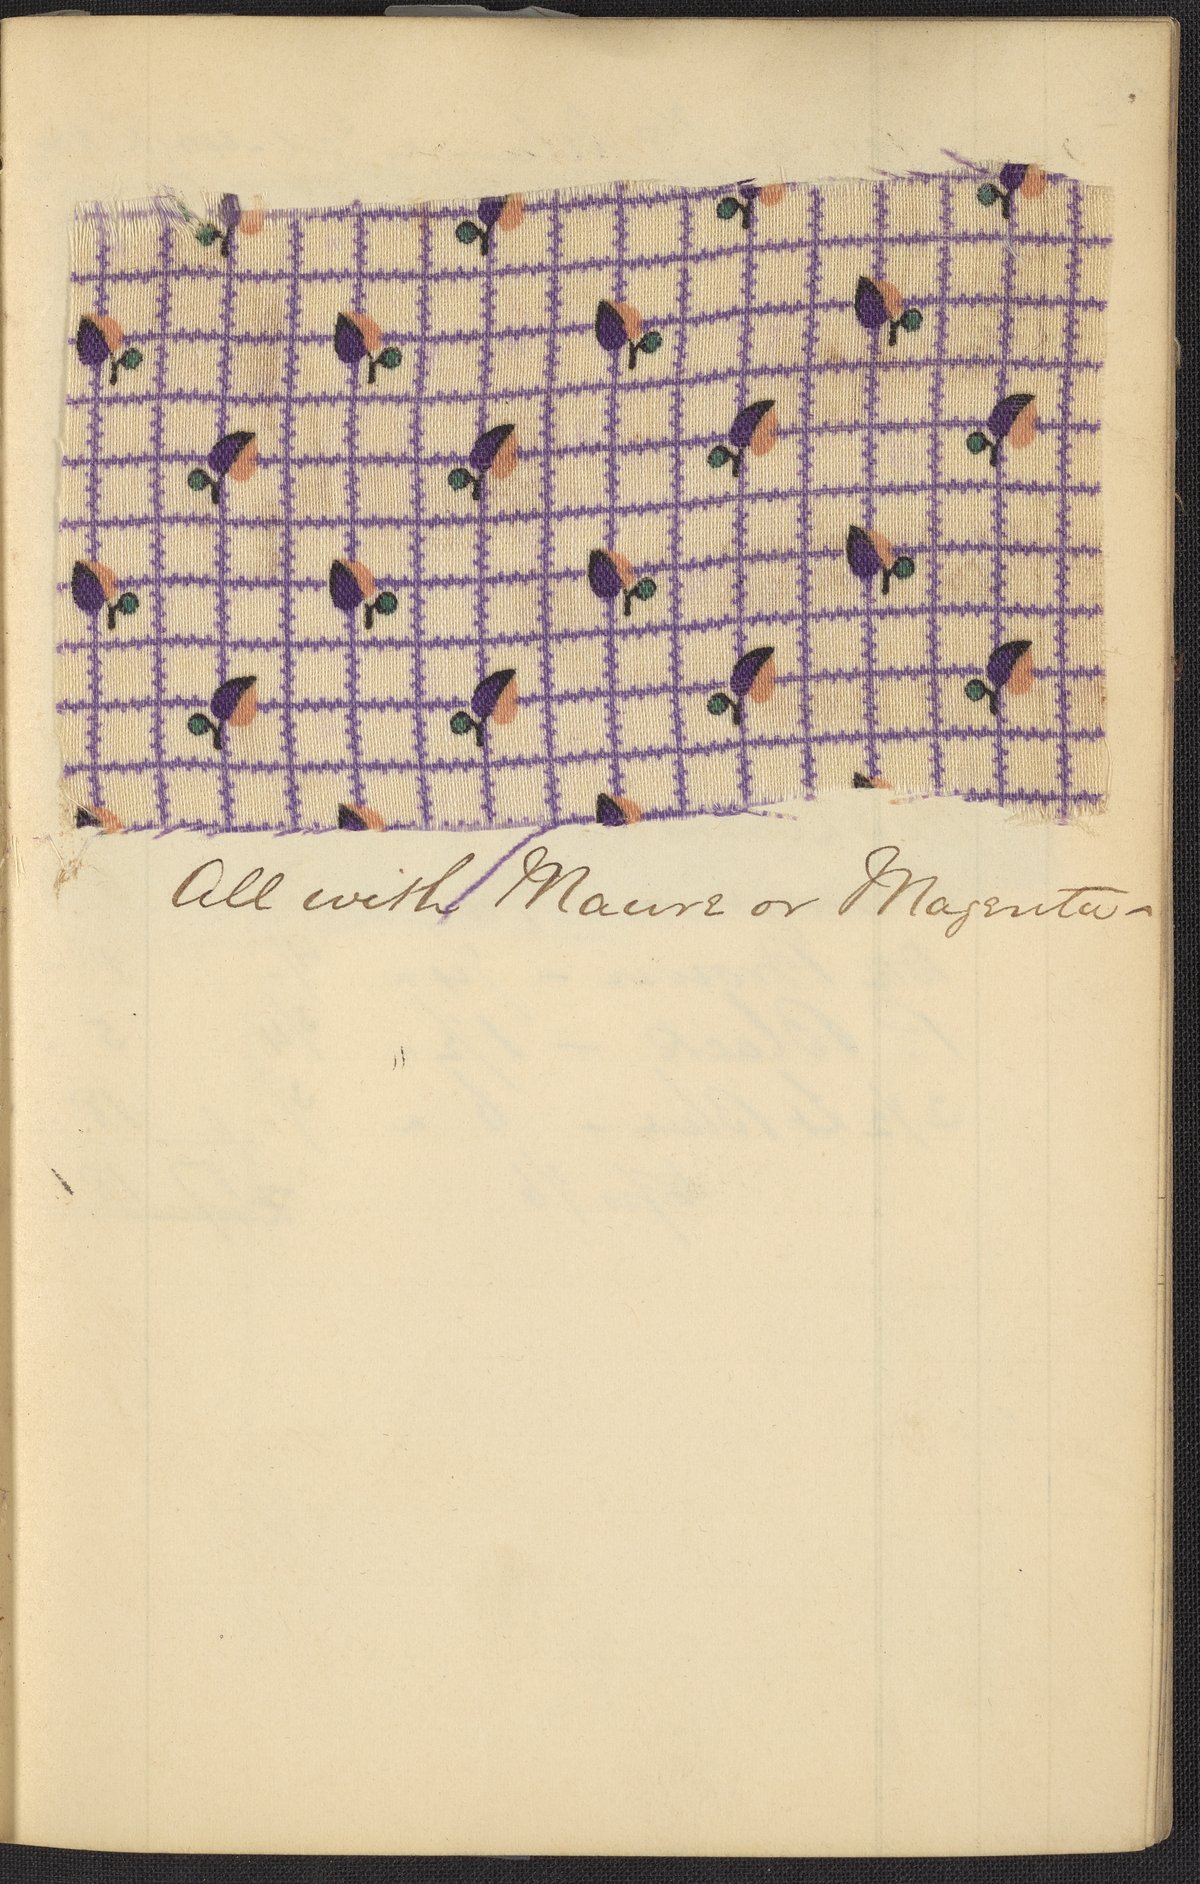 All with Mauve or Magenta -